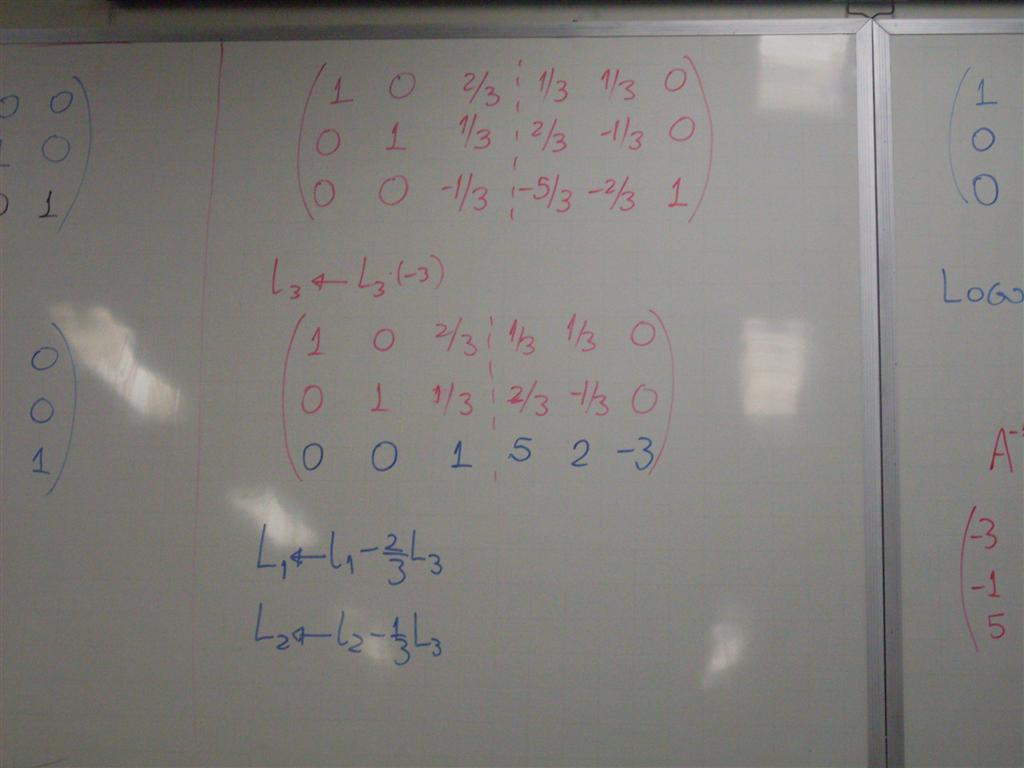 0 0
1 0
0 1
0
0
1
1 0 2/3 1/3 1/3 0
0 1 1/3 2/3 -1/3 0
0 0 -1/3 -5/3 -2/3 1
L3 ← L3·(-3)
1 0 2/3 1/3 1/3 0
0 1 1/3 2/3 -1/3 0
0 0 1 5 2 -3
L1 ← L1 - 2/3 L3
L2 ← L2 - 1/3 L3
1
0
0
A⁻
-3
-1
5